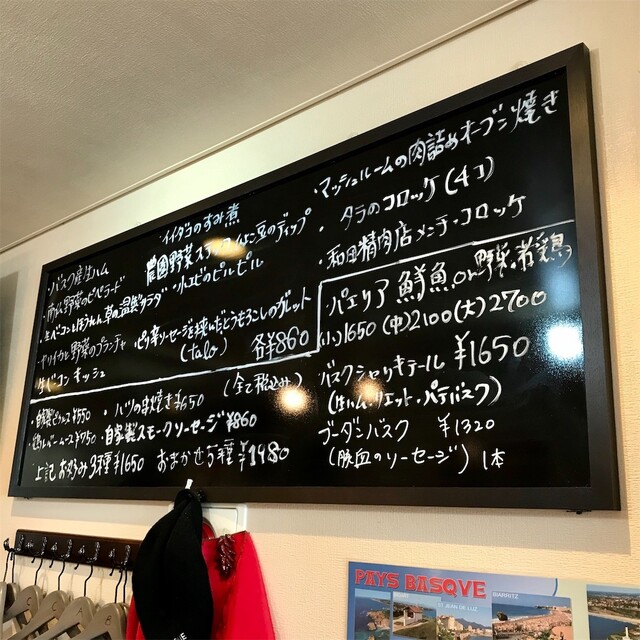 イイダコのすみ煮
・バスク産生ハム
農園野菜スティック
のディップ
・小エビのピルピル
・生ベーコンとほうれん草の温製サラダ
・ヤリイカと野菜のプランチャ
ピリ辛ソーセージを挟んだとうもろこしのガレット
(talo)
各¥860
生ベーコン キッシュ
・マッシュルームの肉詰めオーブン焼き
・タラのコロッケ(4コ)
・和田精肉店メンチ・コロッケ
・自家製ピクルス¥550
・ハツの串焼き¥650
(全て税込み)
鶏レバームース¥750
・自家製スモークソーセージ¥860
上記 お好み3種¥1650
おまかせ5種¥1980
・パエリア 鮮魚or野菜・若鶏
(小)1650 (中)2100 (大)2700
バスクシャリキテール ¥1650
(生ハム・リエット・パテバスク)
ブーダンバスク ¥1320
(豚血のソーセージ) 1本
PAYS BASQUE
BIARRITZ
ST JEAN DE LUZ